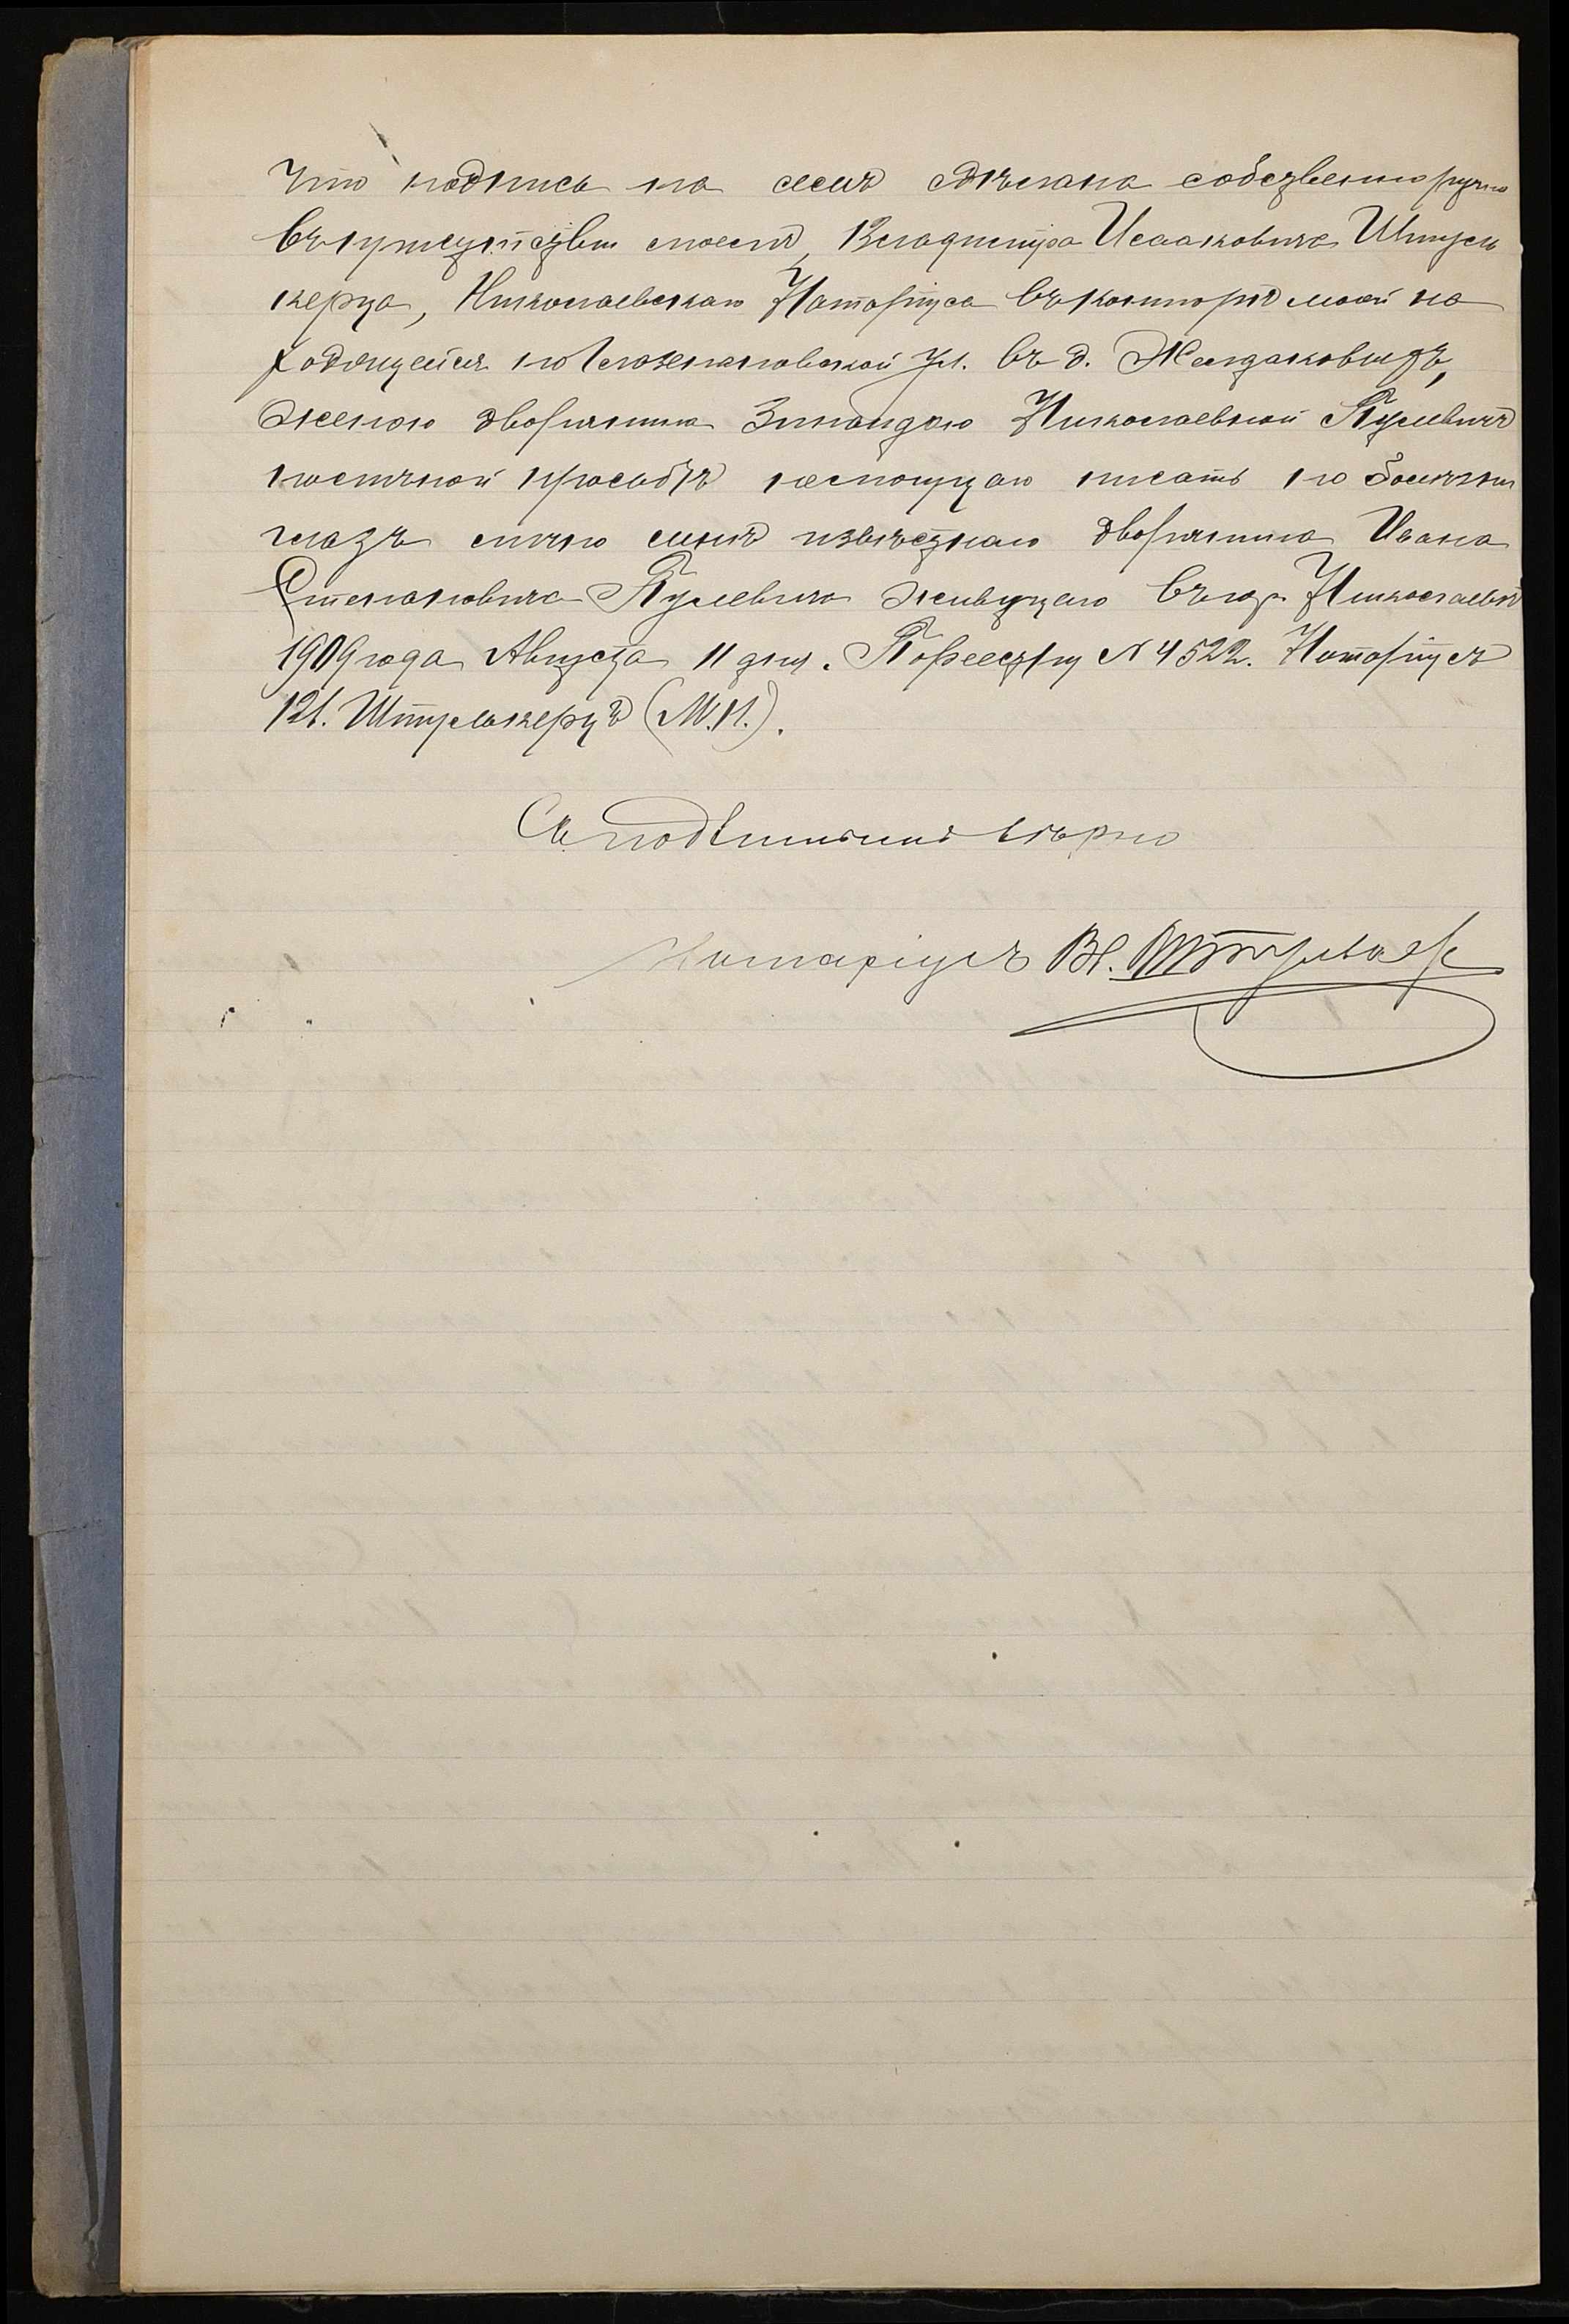 что подпись на семъ сдѣлана собственноручно
въ присутствіи моемъ, Владиміра Исааковича Штуль
керца, Николаевскаго Нотаріуса въ конторѣ моей на
ходящейся по ул. въ д.
женою дворянина Зинаидою Николаевной Пулевичъ
по личной просьбѣ не могущаго писать по болѣзни
глазъ лично мнѣ извѣстнаго дворянина Ивана
Степановича Пулевича живущаго въ гор. Николаевѣ
1909 года Августа 11 дня. По реестру № 4522. Нотаріусъ
Вл. Штулькерцъ (М.П.).
Съ подлиннымъ вѣрно
Нотаріусъ Вл. Штулькерц